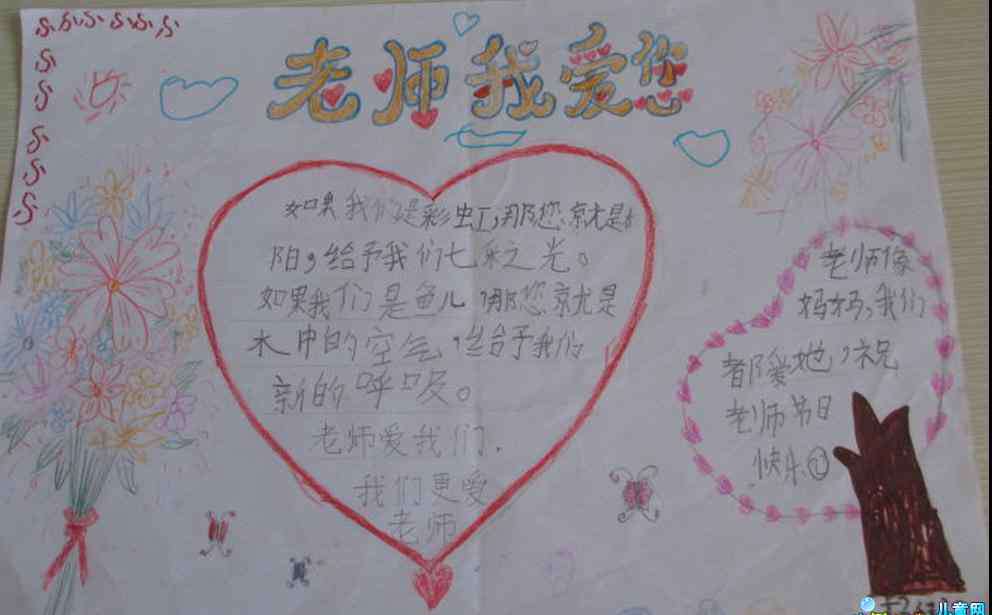 老师我爱您
如果我们是彩虹,那您就是太
阳,给予我们七彩之光。
如果我们是鱼儿,那您就是
水中的空气,给予我们
新的呼吸。
老师爱我们.
我们更爱
老师
老师像
妈妈,我们
都爱她,祝
老师节日
快乐
儿童网